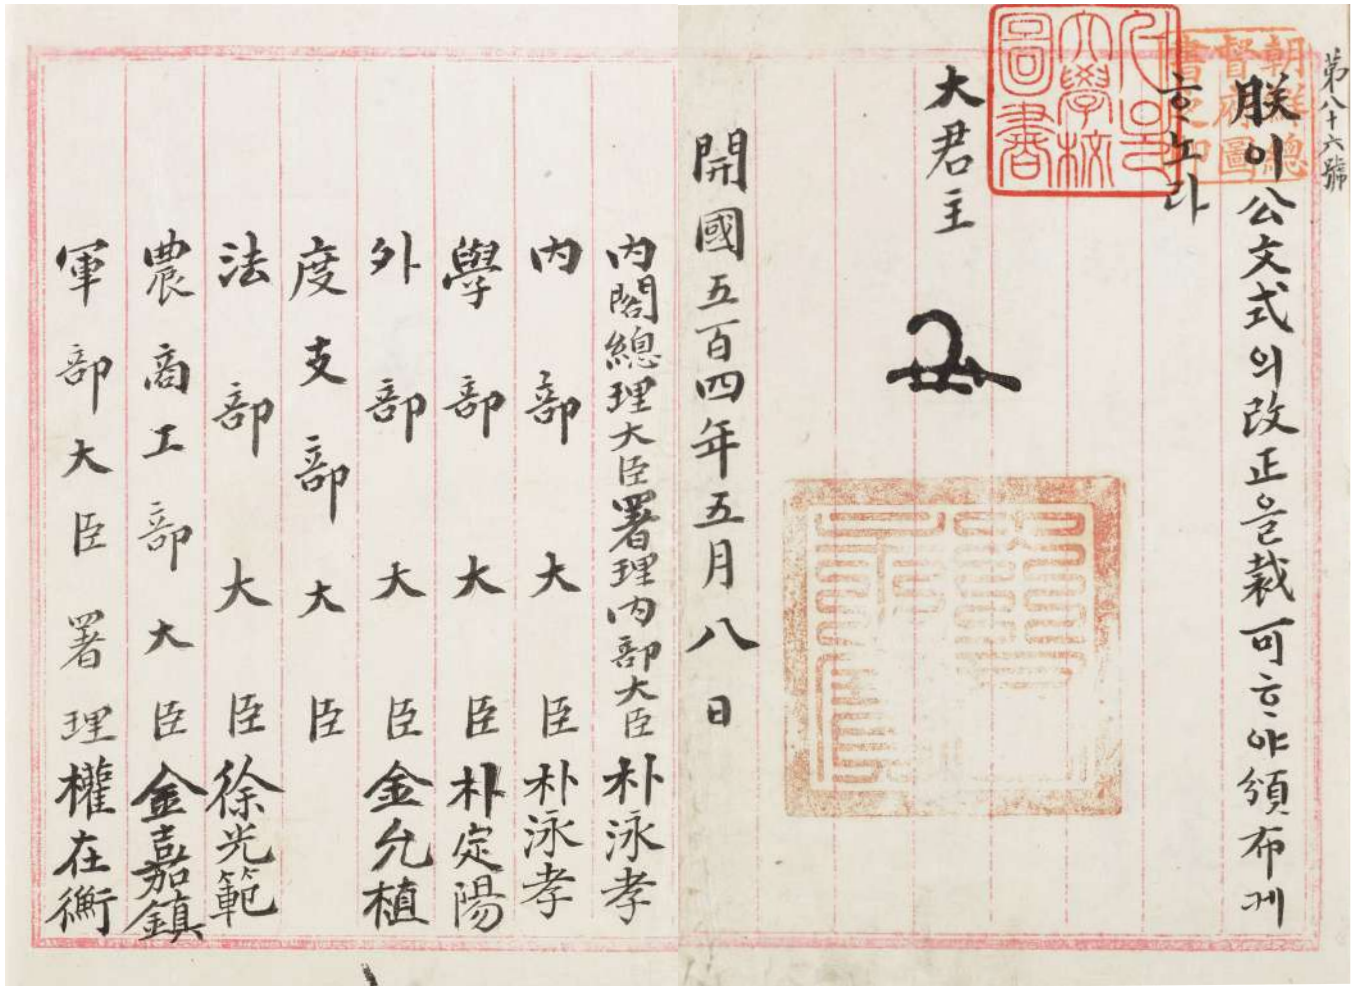 第八十六號
朝鮮總督府圖書之印
朕이公文式의改正을裁可ᄒᆞ야頒布케
ᄒᆞ노라
서울大學校圖書
大君主
開國五百四年五月八日
内閣總理大臣署理内部大臣朴泳孝
内部大臣朴泳孝
學部大臣朴定陽
外部大臣金允植
度支部大臣
法部大臣徐光範
農商工部大臣金嘉鎮
軍部大臣署理權在衡